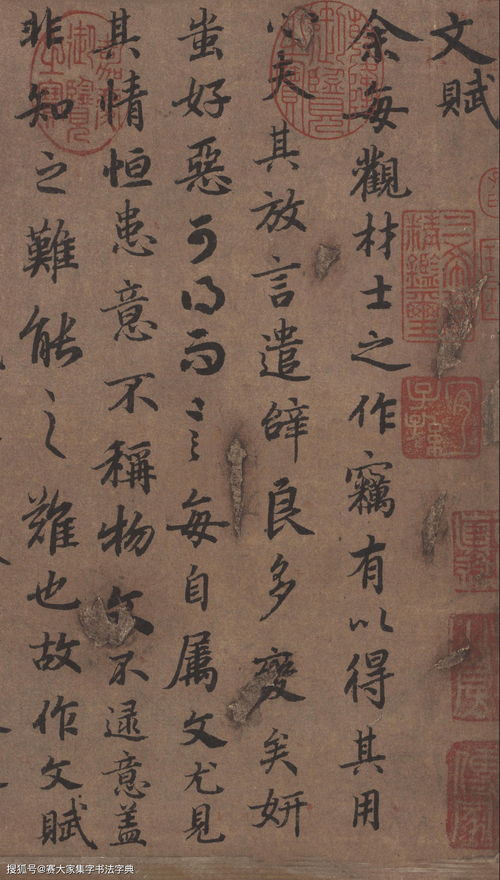 文賦
余每觀材士之作竊有以得其用
心夫其放言遣辭良多變矣妍
蚩好惡可得而言每自屬文尤見
其情恒患意不稱物文不逮意蓋
非知之難能之難也故作文賦
三希堂精鑑璽
宜子孫
嘉慶御覽之寶
搜狐号@赛大家集字书法字典